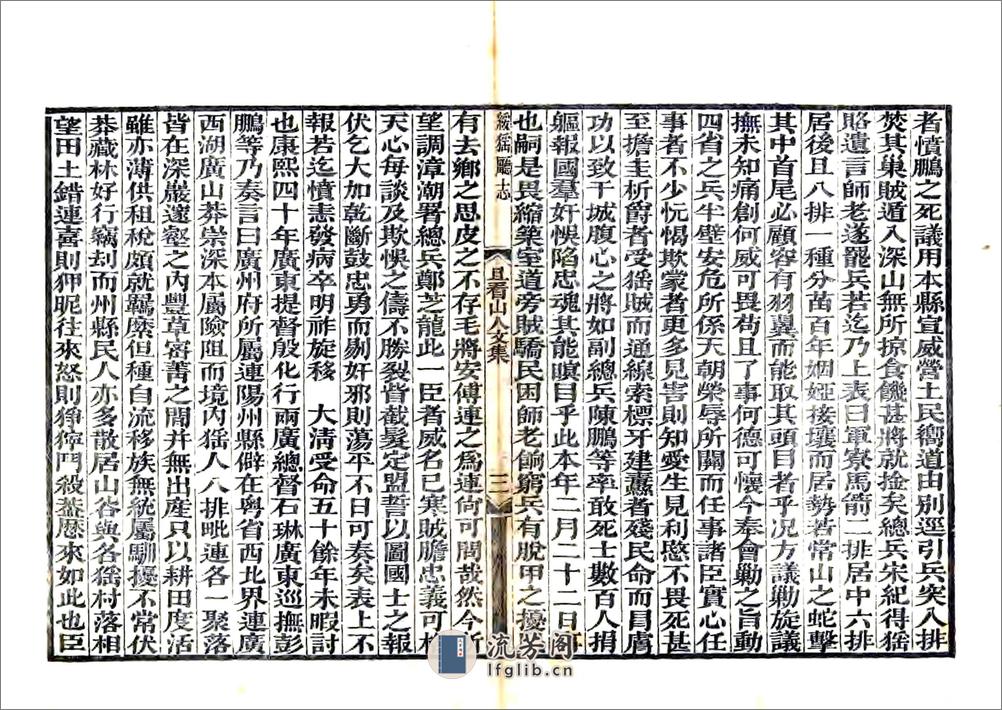 者憤鵬之死議用本縣宣威營土民嚮道由別逕引兵突入排
焚其巢賊遁入深山無所掠食饑甚將就撿矣總兵宋紀得猺
賂遺言師老遂罷兵若迄乃上表曰軍寮馬箭二排居中六排
居後且八排一種分苗百年姻婭接壤而居勢若常山之蛇擊
其中首尾必顧容有羽翼而能取其頭目者乎况方議勦旋議
撫未知痛創何威可畏苟且了事何德可懷今奉會勦之旨動
四省之兵半壁安危所係天朝榮辱所關而任事諸臣實心任
事者不少忨愒欺蒙者更多見害則知愛生見利愍不畏死甚
至擔圭析爵者受猺賊而通線索標牙建纛者殘民命而冐膚
功以致干城腹心之將如副總兵陳鵬等率敢死士數百人捐
軀報國羣奸悞陷忠魂其能瞑目乎此本年二月二十二日事
也嗣是畏縮築室道旁賊驕民困師老餉窮兵有脫甲之擾
綏猺廳志
且看山人文集
三
有去鄉之思皮之不存毛將安傅連之爲連尙可問哉然今所
望調漳潮署總兵鄭芝龍此一臣者威名已寒賊膽忠義可格
天心每談及欺悞之儔不勝裂眥截髮定盟誓以圖國士之報
伏乞大如乾斷鼓忠勇而剔奸邪則蕩平不日可奏矣表上不
報若迄憤恚發病卒明祚旋移　大淸受命五十餘年未暇討
也康熙四十年廣東提督殷化行兩廣總督石琳廣東巡撫彭
鵬等乃奏言曰廣州府所屬連陽州縣僻在粵省西北界連廣
西湖廣山莽崇深本屬險阻而境內猺人八排毗連各一聚落
皆在深巖邃壑之內豐草窨菁之閒并無出產只以耕田度活
雖亦薄供租稅頗就羈縻但種自流移族無統屬馴擾不常伏
莽藏林好行竊刦而州縣民人亦多散居山谷與各猺村落相
望田土錯連喜則狎昵往來怒則猙獰鬥殺蓋歷來如此也臣
流芳阁
lfglib.cn